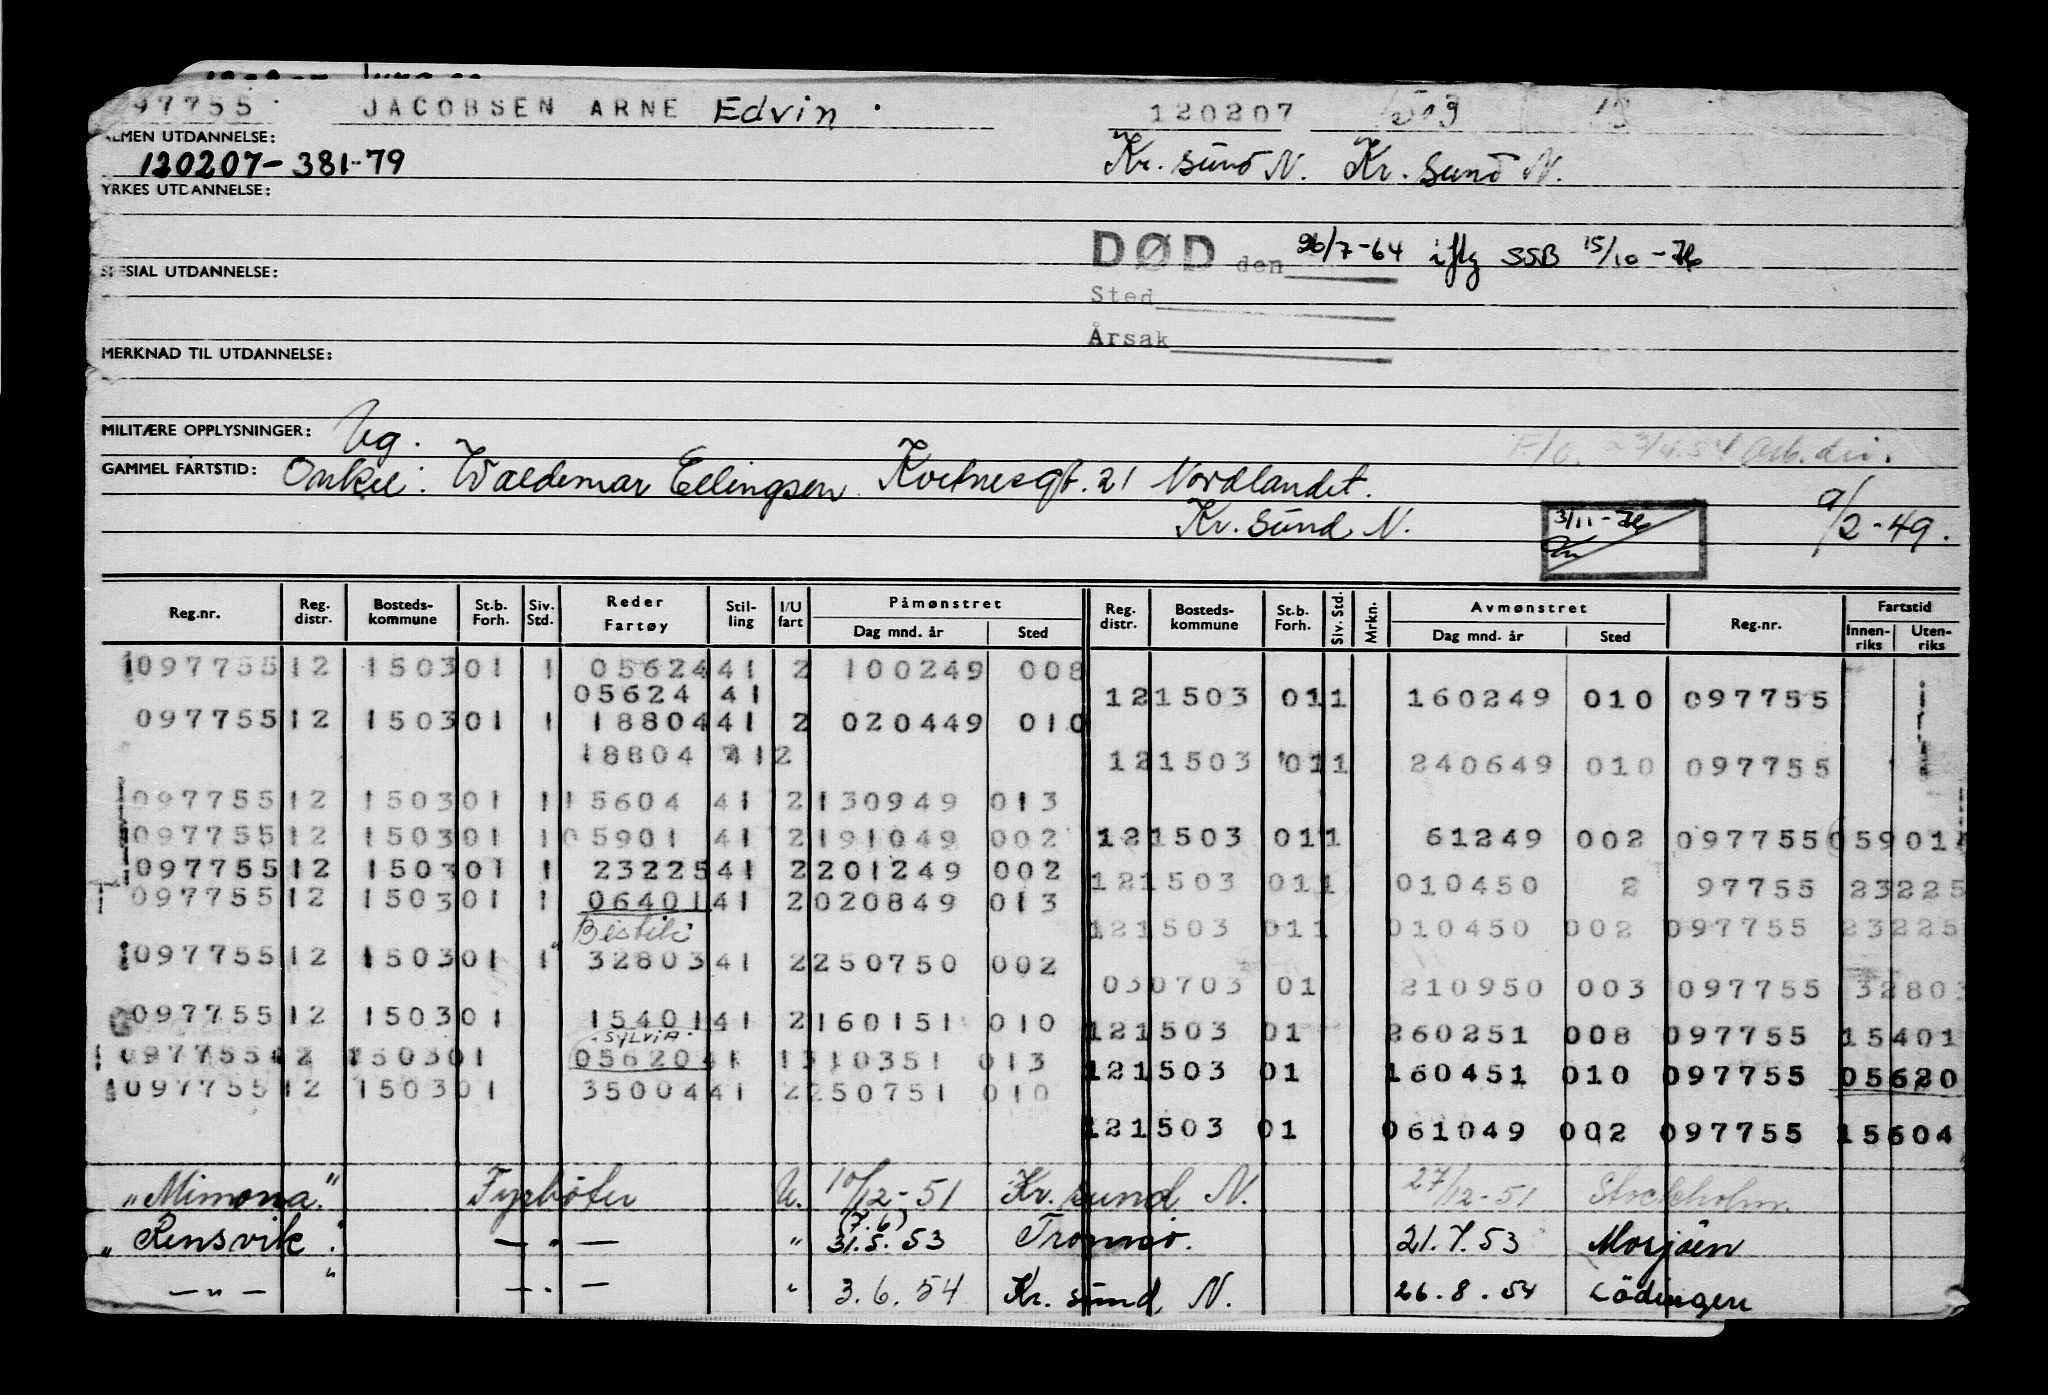 97755 JACOBSEN ARNE Edvin. 120207
LMEN UTDANNELSE: Kr. sund N. Kr. sund N.
120207-381-79
YRKES UTDANNELSE:
DØD den 26/7-64 iflg SSB 15/10-76
SPESIAL UTDANNELSE:
Sted
Årsak
MERKNAD TIL UTDANNELSE:
MILITÆRE OPPLYSNINGER: Ug. F/O. 23/4.54 Arb.dir.
GAMMEL FARTSTID: Onkel: Waldemar Ellingsen Kvernesgt. 21 Nordlandet.
Kr. sund N. 3/11-76 9/2-49.
Reg.nr. Reg. distr. Bosteds-kommune St.b. Forh. Siv. Std. Reder Fartøy Stil-ling I/U fart Påmønstret Dag mnd. år Sted Reg. distr. Bosteds-kommune St.b. Forh. Siv. Std. Mrkn. Avmønstret Dag mnd. år Sted Reg.nr. Fartstid Innen-riks Uten-riks
097755 12 1503 01 1 05624 41 2 100249 008
05624 41 12 1503 01 1 160249 010 097755
097755 12 1503 01 1 18804 41 2 020449 010
18804 41 2 12 1503 01 1 240649 010 097755
097755 12 1503 01 1 15604 41 2 130949 013
097755 12 1503 01 1 05901 41 2 191049 002 12 1503 01 1 61249 002 097755 05901
097755 12 1503 01 1 23225 41 2 201249 002 12 1503 01 1 010450 2 97755 23225
097755 12 1503 01 1 06401 41 2 020849 013
Bestik 12 1503 01 1 010450 002 097755 23225
097755 12 1503 01 1 32803 41 2 250750 002
03 0703 01 210950 003 097755 32803
097755 12 1503 01 15401 41 2 160151 010 12 1503 01 260251 008 097755 15401
SYLVIA
097755 12 1503 01 05620 41 1 310351 013 12 1503 01 160451 010 097755 05620
097755 12 1503 01 35004 41 2 250751 010
12 1503 01 061049 002 097755 15604
"Mimona" Fyrbøter U. 10/12-51 Kr. sund N. 27/12-51 Stockholm.
"Rensvik" — " — " (7.6) 31.5.53 Tromsø. 21.7.53 Mosjøen
— " — " — " — " 3.6.54 Kr. sund N. 26.8.54 Lödingen